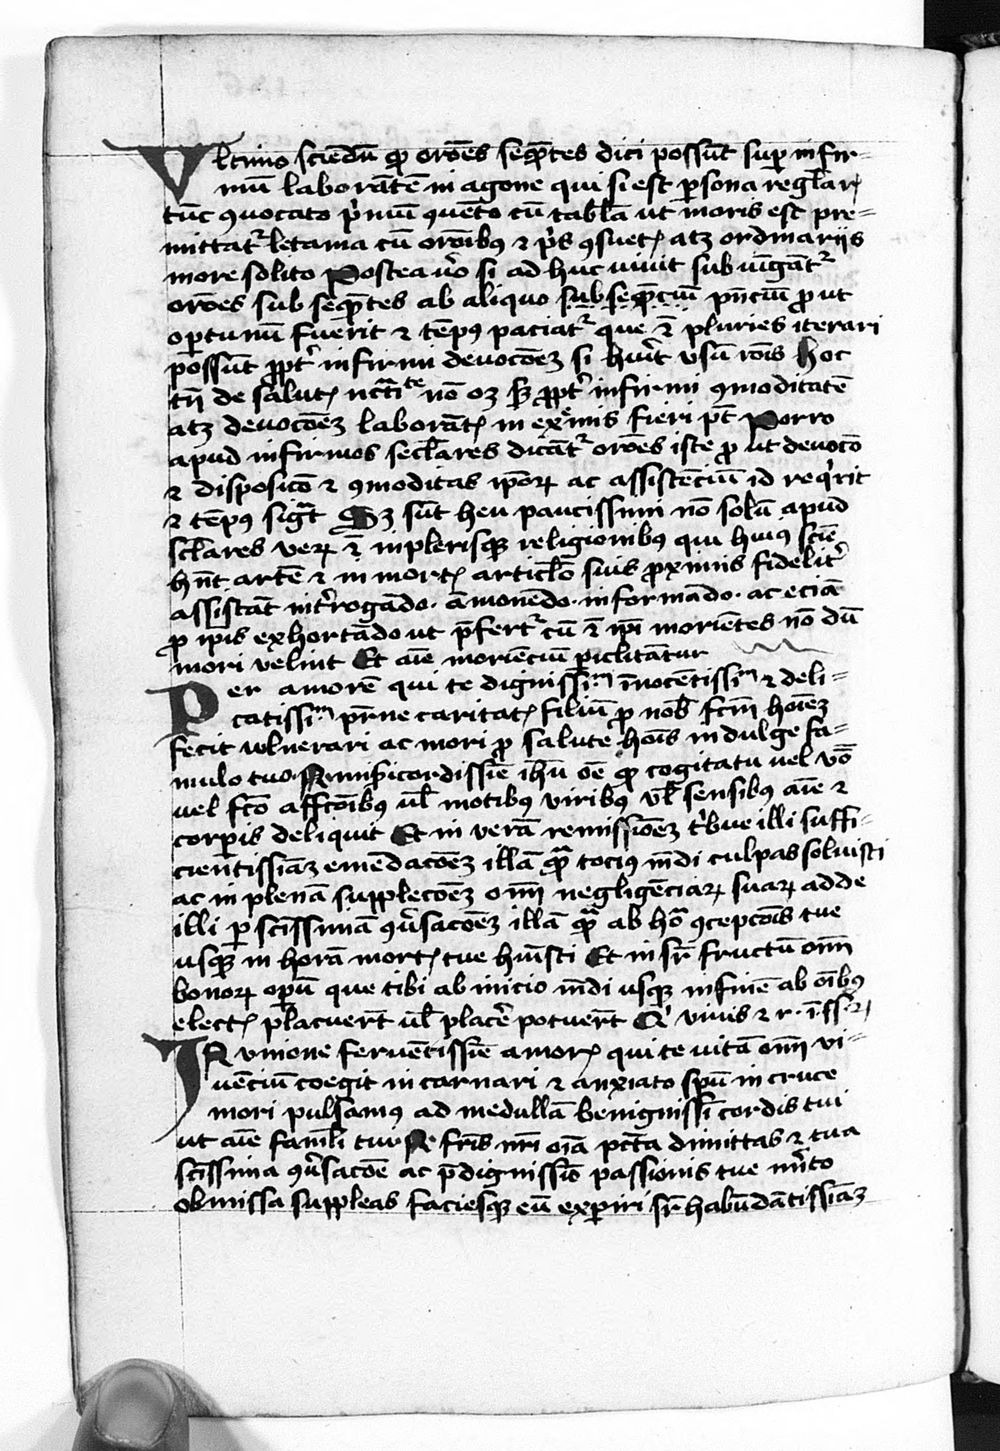 Vltimo sciēdū ꝙ orōēs seq̄ntes dici possūt sup̄ infir-
mū laborātē in agone qui si est ꝑsona regl̄arꝭ
tūc ꝯuocato p̄mū ꝯuēto cū tabl̄a ut moris est pre=
mittatᷣ letania cū orōibꝰ ⁊ p̄s ꝯsuetꝭ atqꝫ ordinariis
more solito Postea v̄o si ad huc uiuit sub iūgātᷣ
orōes sub seq̄ntes ab aliquo subseq̄nciū p̄nciū ꝓut
oportunū fuerit ⁊ tēpꝰ paciatᷣ que ⁊̄ pluries iterari
possūt ꝓpt̄ infirmi deuocōēꝫ si hu̅it vsū rōis Hoc
tn̄ de salutꝭ nc̄citͭᵉ nō oꝫ sꝫ ꝓpt̄ infirmi ꝯmoditatē
atqꝫ deuocōēꝫ laborātꝭ in ext̄mis fieri pt̄ Porro
apud infirmos secl̄ares dicātᷣ orōes iste ꝓ ut deuocō
⁊ disposicō ⁊ ꝯmoditas ip̄oꝝ ac assistēciū id req̄rit
⁊ tēpꝰ Sꝫ sūt heu paucissimi nō solū apud
scl̄ares veꝝ ⁊̄ in plerisqꝫ religionibꝰ qui huiꝰ sciē
hn̄t artē ⁊ in mortꝭ articl̄o suis ꝓximis fidelit̄
assistāt int̄rogādo· āmonēdo· informādo· ac eciā
ꝓ ip̄is exhortādo ut p̄fertᷣ cū ⁊̄ ip̄i moriētes nō dū
mori velint Et aīe moriēciū ꝑiclitātur
Per amorē qui te dignissīᵐ īnocētissīᵐ ⁊ deli-
catissīᵐ p̄rne caritatꝭ filiū ꝓ nob̄ fc̄m hoīeꝫ
fecit vulnerari ac mori ꝓ salute hoīs indulge fa-
mulo tuo N mīsicordissīe ih̄u oē ꝙ cogitatu uel v̄o
uel fc̄o affcōibꝰ ul̄ motibꝰ viribꝰ vl̄ sensibꝰ aīe ⁊
corꝑis deliquit Et in verā remissiōeꝫ t̄bue illi suffi-
cientissiāꝫ emēdacōēꝫ illā q̄ tociꝰ mūdi culpas soluisti
ac in plenā supplecōēꝫ oīm negligēciaꝝ suaꝝ adde
illi ꝑ scīssimā ꝯu̅sacōēꝫ illā q̄ ab ho̅a ꝯcepcōis tue
usqꝫ in horā mortꝭ tue hu̅isti Et insr̄ fructū oīm
bonoꝝ opū que tibi ab inicio mūdi usqꝫ in finē ab oībꝰ
electꝭ placuert̄ ul̄ place̅ potuert̄ Qi viuis ⁊ r·
In vnione feruētissīe amorꝭ qui te uitā oīm vi-
uēciū coegit incarnari ⁊ anxiato sp̄u in cruce
mori pulsamꝰ ad medullā benignissī cordis tui
ut aīe famli̅ tui N fr̄is nr̄i oīa pctā dimittas ⁊ tua
scīssima ꝯu̅sacōe ac p̄dignissīo passionis tue m̄ito
obmissa suppleas faciesqꝫ eū exꝑiri sr̄habūdātissiāꝫ